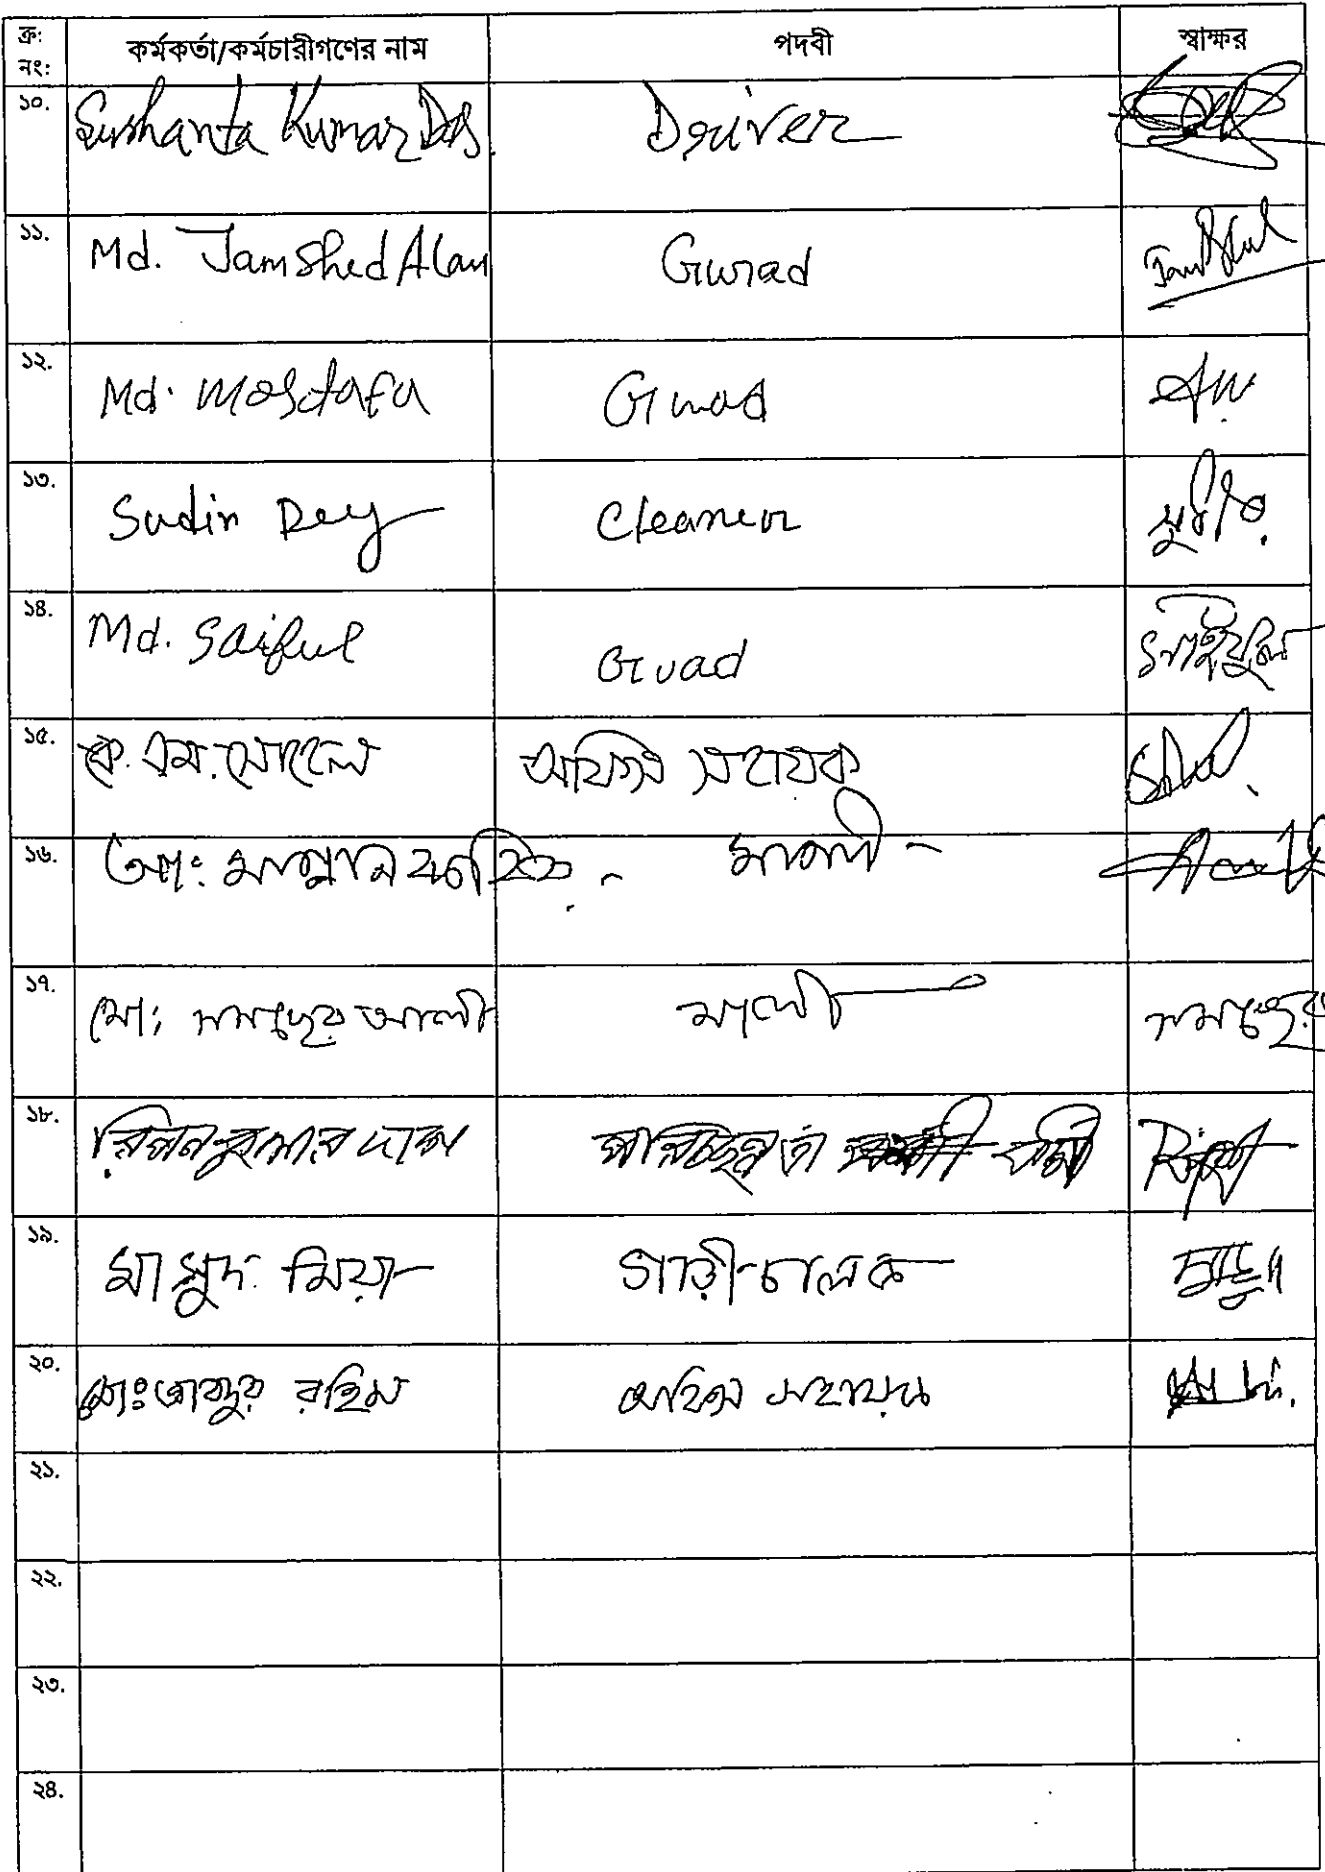 ক্র: নং: কর্মকর্তা/কর্মচারীগণের নাম পদবী স্বাক্ষর
১০. Sushanta Kumar Das Driver
১১. Md. Jamshed Alam Gurad
১২. Md. Mostafa Guad
১৩. Sudin Dey Cleaner সুধীর
১৪. Md. Saiful Guad সাইফুল
১৫. কে. এম. সোহেল অফিস সহায়ক
১৬. মোঃ মান্নান মালী
১৭. মো: সমছের আলী মালী সমছের
১৮. রিপন কুমার দাস পরিচ্ছন্নতা কর্মী Ripon
১৯. মাসুদ মিয়া গাড়ী চালক
২০. মোঃ আব্দুর রহিম অফিস সহায়ক
২১.
২২.
২৩.
২৪.